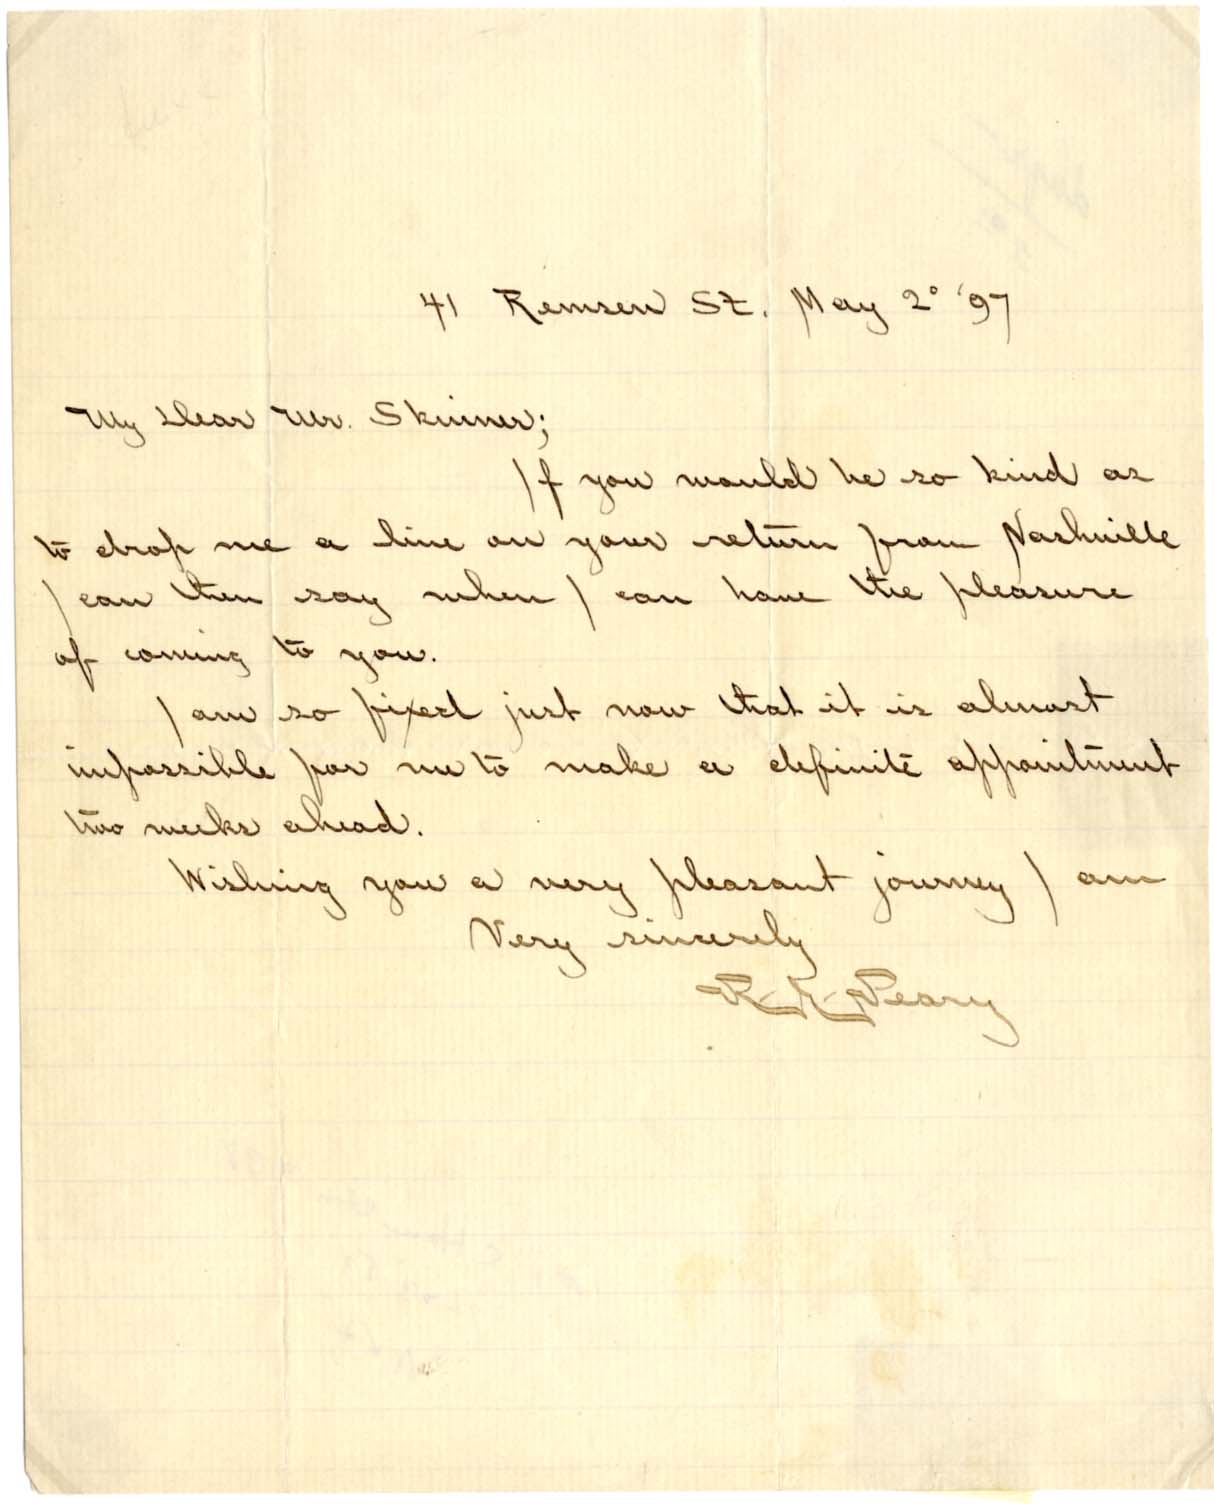 41 Remsen St. May 2° '97
My Dear Mr. Skinner;
If you would be so kind as
to drop me a line on your return from Nashville
I can then say when I can have the pleasure
of coming to you.
I am so fixed just now that it is almost
impossible for me to make a definite appointment
two weeks ahead.
Wishing you a very pleasant journey I am
Very sincerely
R. E. Peary